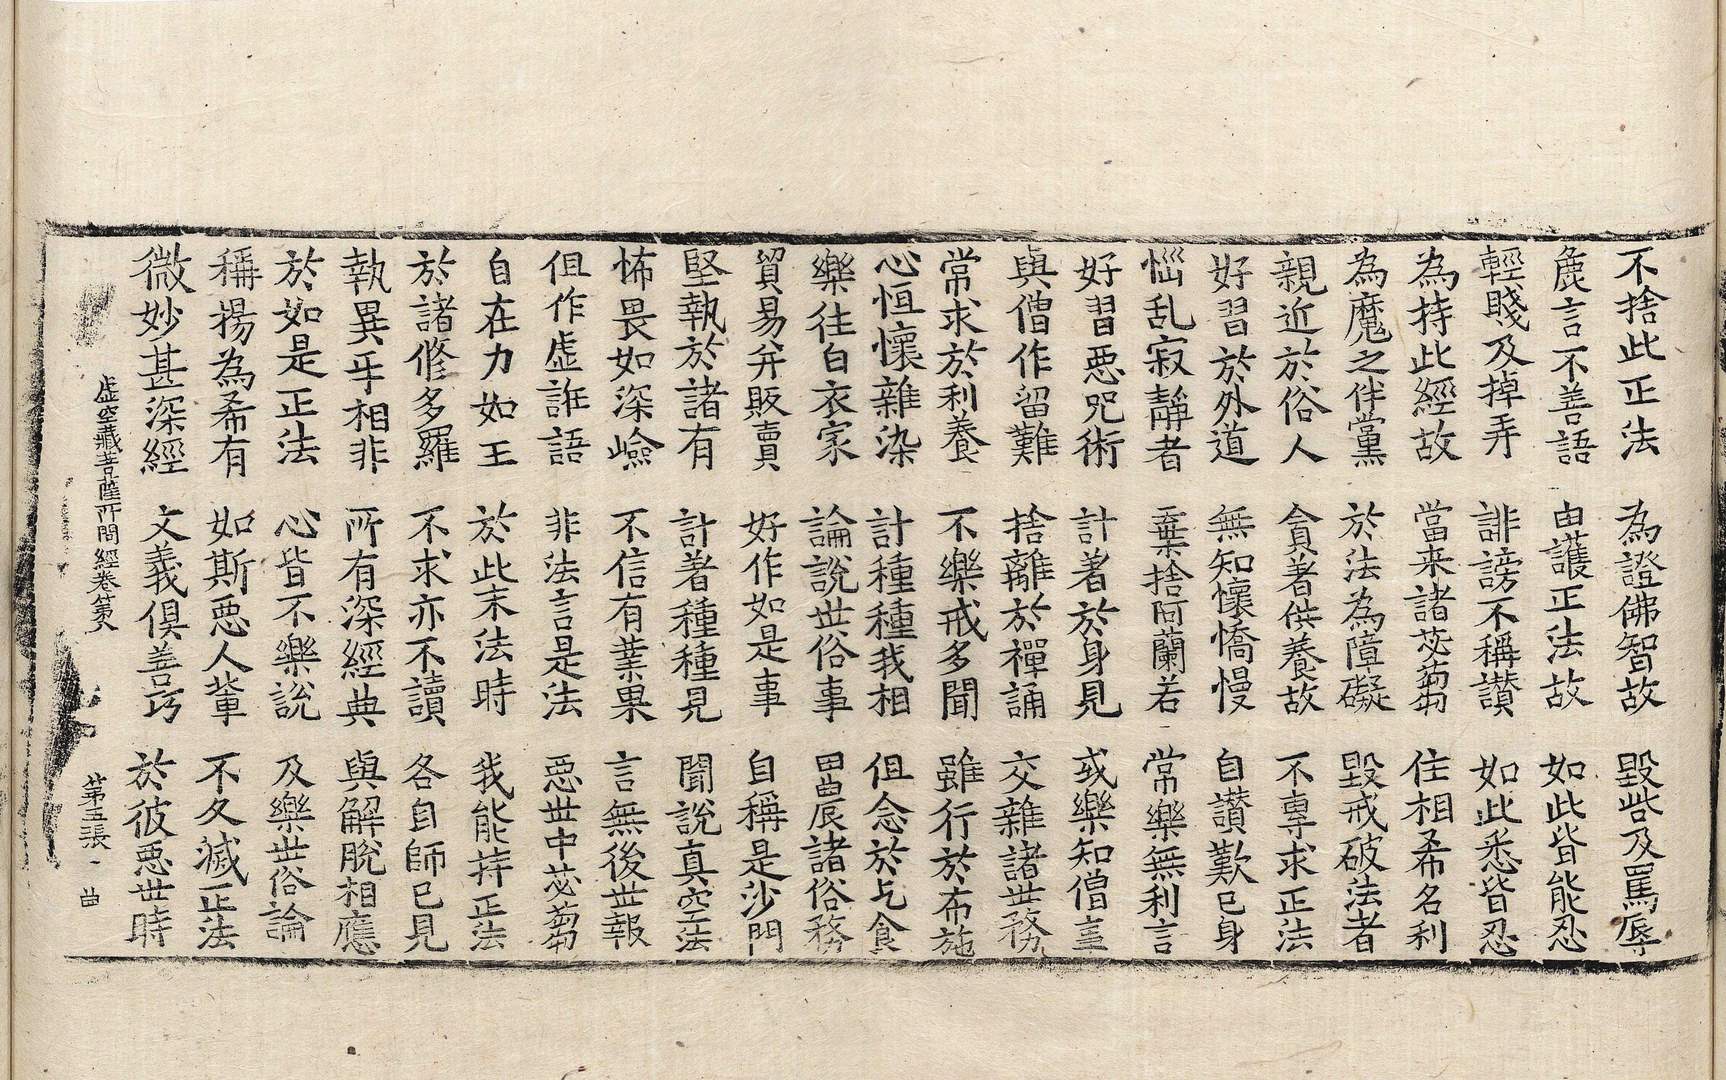 不捨此正法 為證佛智故 毀呰及罵辱
麁言不善語 由護正法故 如此皆能忍
輕賤及掉弄 誹謗不稱讃 如此悉皆忍
為持此經故 當来諸苾蒭 住相希名利
為魔之伴黨 於法為障礙 毀戒破法者
親近於俗人 貪著供養故 不專求正法
好習於外道 無知懷憍慢 自讃歎己身
惱乱寂靜者 棄捨阿蘭若 常樂無利言
好習惡咒術 計著於身見 或樂知僧事
與僧作留難 捨離於禪誦 交雜諸世務
常求於利養 不樂戒多聞 雖行於布施
心恒懷雜染 計種種我相 但念於乞食
樂往白衣家 論說世俗事 田農諸俗務
貿易并販賣 好作如是事 自稱是沙門
堅執於諸有 計著種種見 聞說真空法
怖畏如深嶮 不信有業果 言無後世報
但作虛誑語 非法言是法 惡世中苾蒭
自在力如王 於此末法時 我能持正法
於諸修多羅 不求亦不讀 各自師己見
執異互相非 所有深經典 與解脫相應
於如是正法 心皆不樂說 及樂世俗論
稱揚為希有 如斯惡人輩 不久滅正法
微妙甚深經 文義俱善巧 於彼惡世時
虛空藏菩薩所問經卷第八 第五張 曲